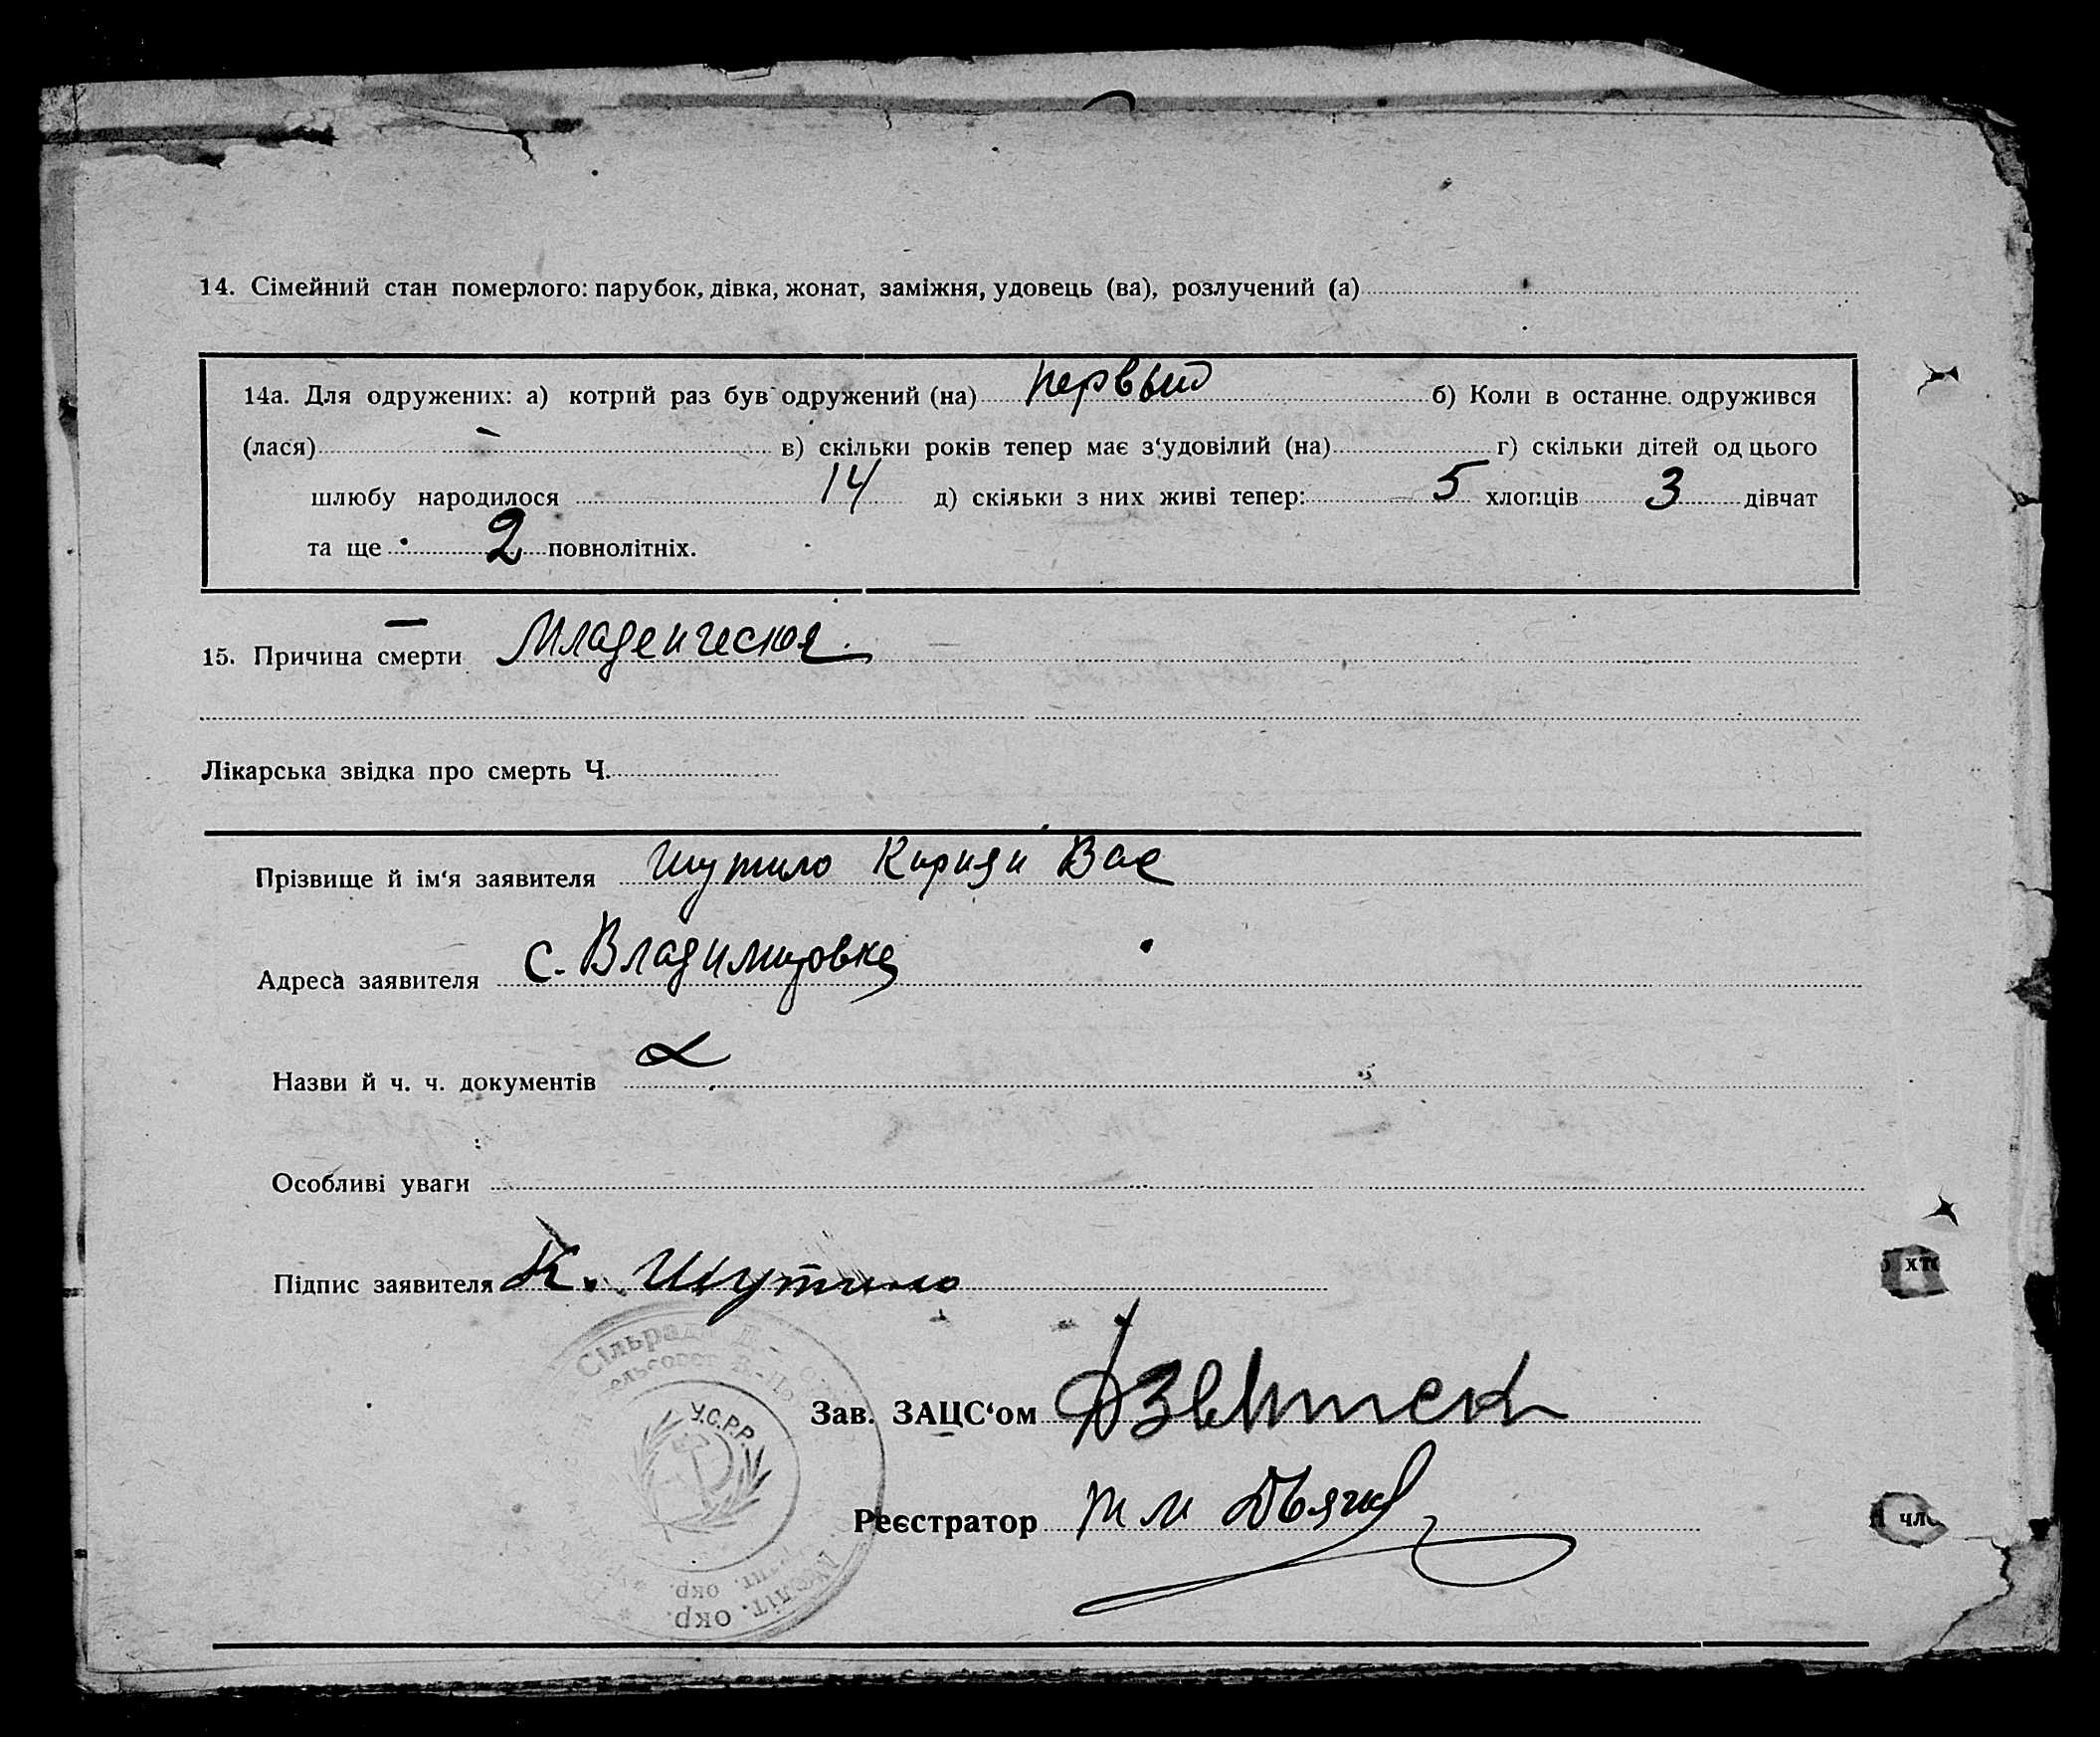 14. Сімейний стан померлого: парубок, дівка, жонат, заміжня, удовець (ва), розлучений (а)
14а. Для одружених: а) котрий раз був одружений (на) первый б) Коли в останне одружився
(лася) - в) скільки років тепер має з‘удовілий (на) г) скільки дітей од цього
шлюбу народилося 14 д) скільки з них живі тепер: 5 хлопців 3 дівчат
та ще 2 повнолітніх.
15. Причина смерти Младенческая
Лікарська звідка про смерть Ч.
Прізвище й ім‘я заявителя Шутило Вас
Адреса заявителя с. Владимировка
Назви й ч. ч. документів
Особливі уваги
Підпис заявителя К. Шутило
Зав. ЗАЦС‘ом
Реєстратор
Сільрада
У.С.Р.Р.
окр.
окр.
хто
чле